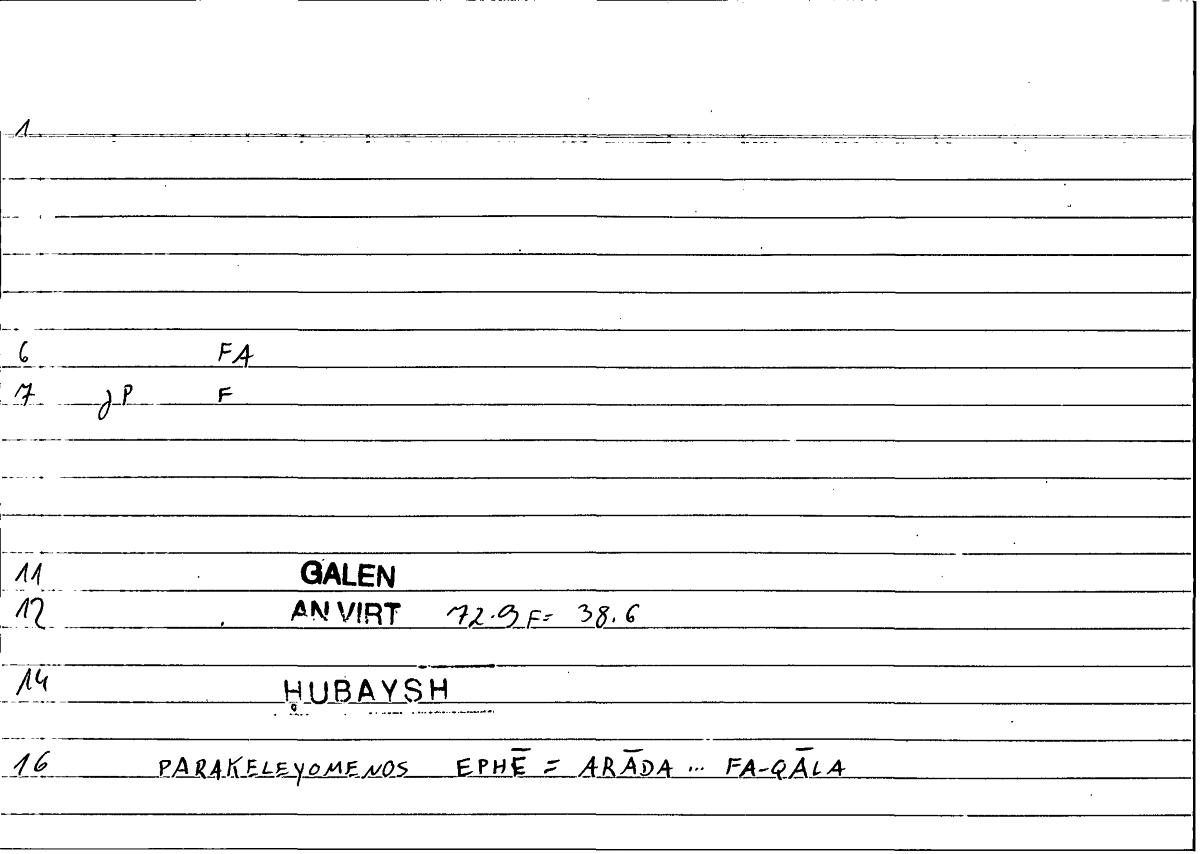 1
6 FA
7 JP F
11 GALEN
12 AN VIRT 72.9 F= 38.6
14 ḤUBAYSH
16 PARAKELEYOMENOS EPHĒ = ARĀDA ... FA-QĀLA